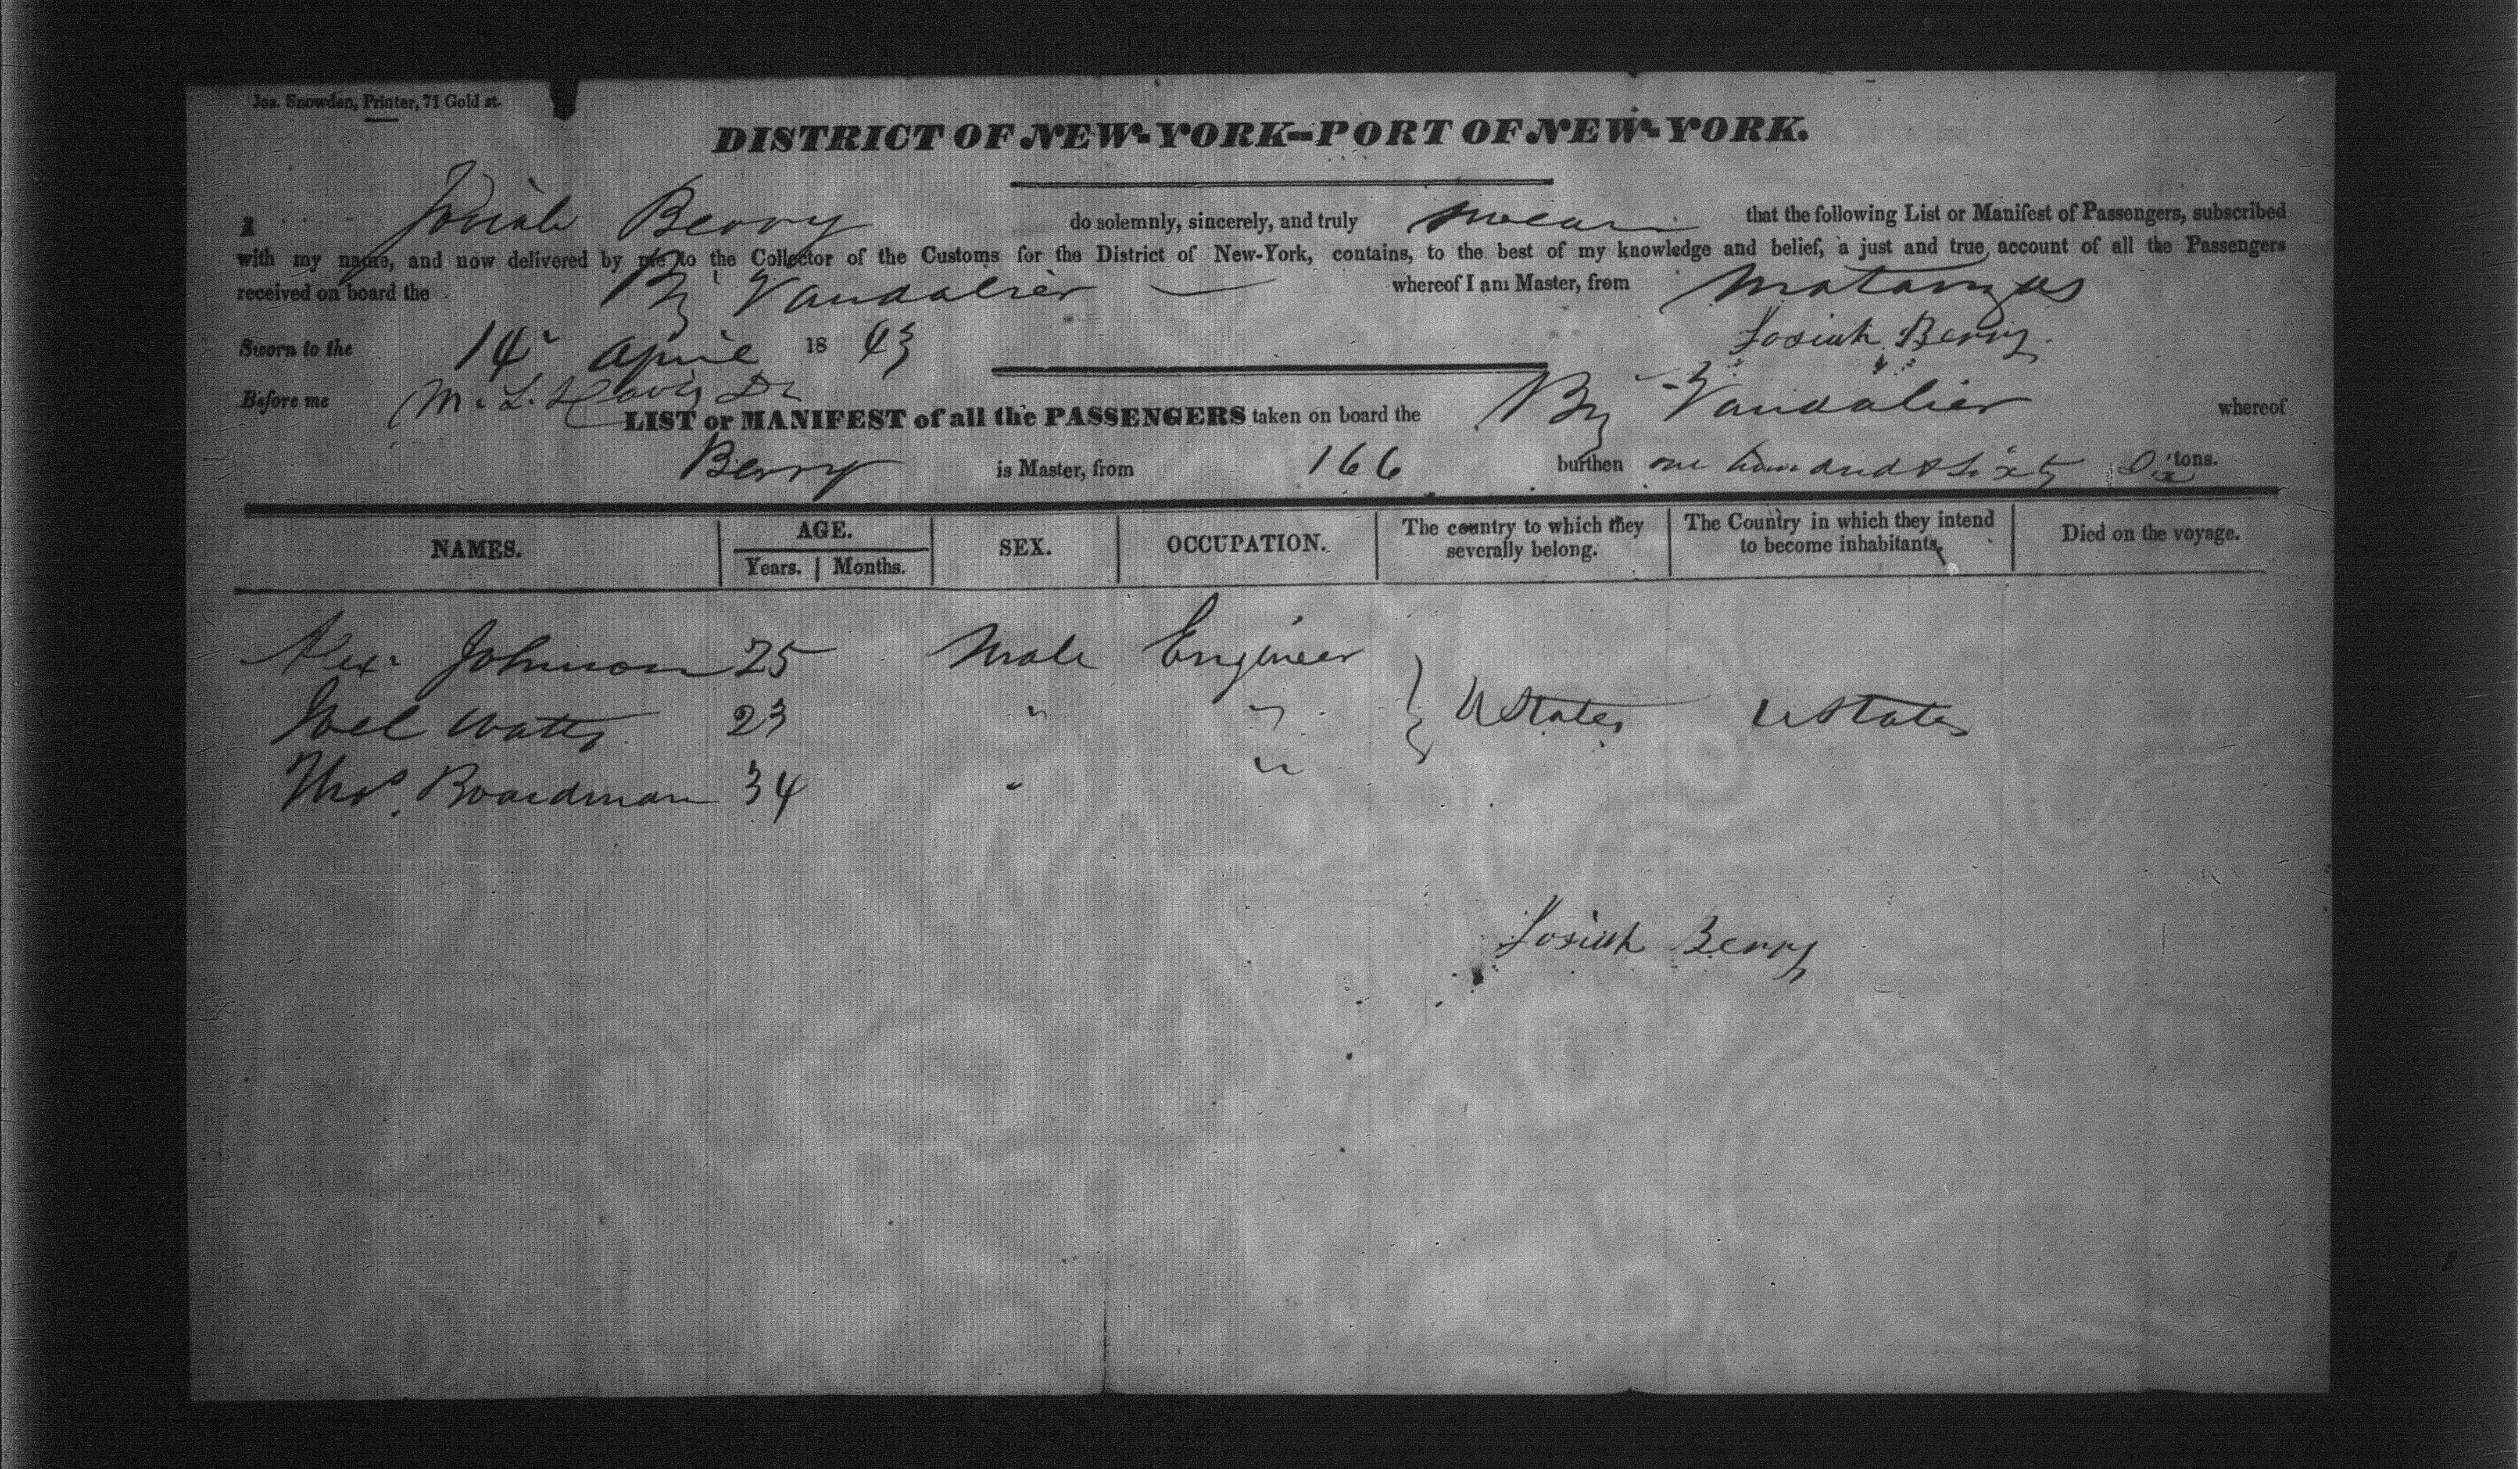 Jos. Snowden, Printer, 71 Gold st.
DISTRICT OF NEW-YORK--PORT OF NEW-YORK.
I Josiah Berry do solemnly, sincerely, and truly swear that the following List or Manifest of Passengers, subscribed
with my name, and now delivered by me to the Collector of the Customs for the District of New-York, contains, to the best of my knowledge and belief, a just and true account of all the Passengers
received on board the Brig Vandalier whereof I am Master, from Matanzas
Sworn to the 14 April 1843 Josiah Berry
Before me M. L. Davis
LIST or MANIFEST of all the PASSENGERS taken on board the Brig Vandalier whereof
Berry is Master, from 166 burthen one hundred & Sixty Six tons.
NAMES. AGE. Years. Months. SEX. OCCUPATION. The country to which they severally belong. The Country in which they intend to become inhabitants. Died on the voyage.
Alex. Johnson 25 Male Engineer
Joel Watts 23 " " } U States U States
Thos. Boardman 34 " "
Josiah Berry